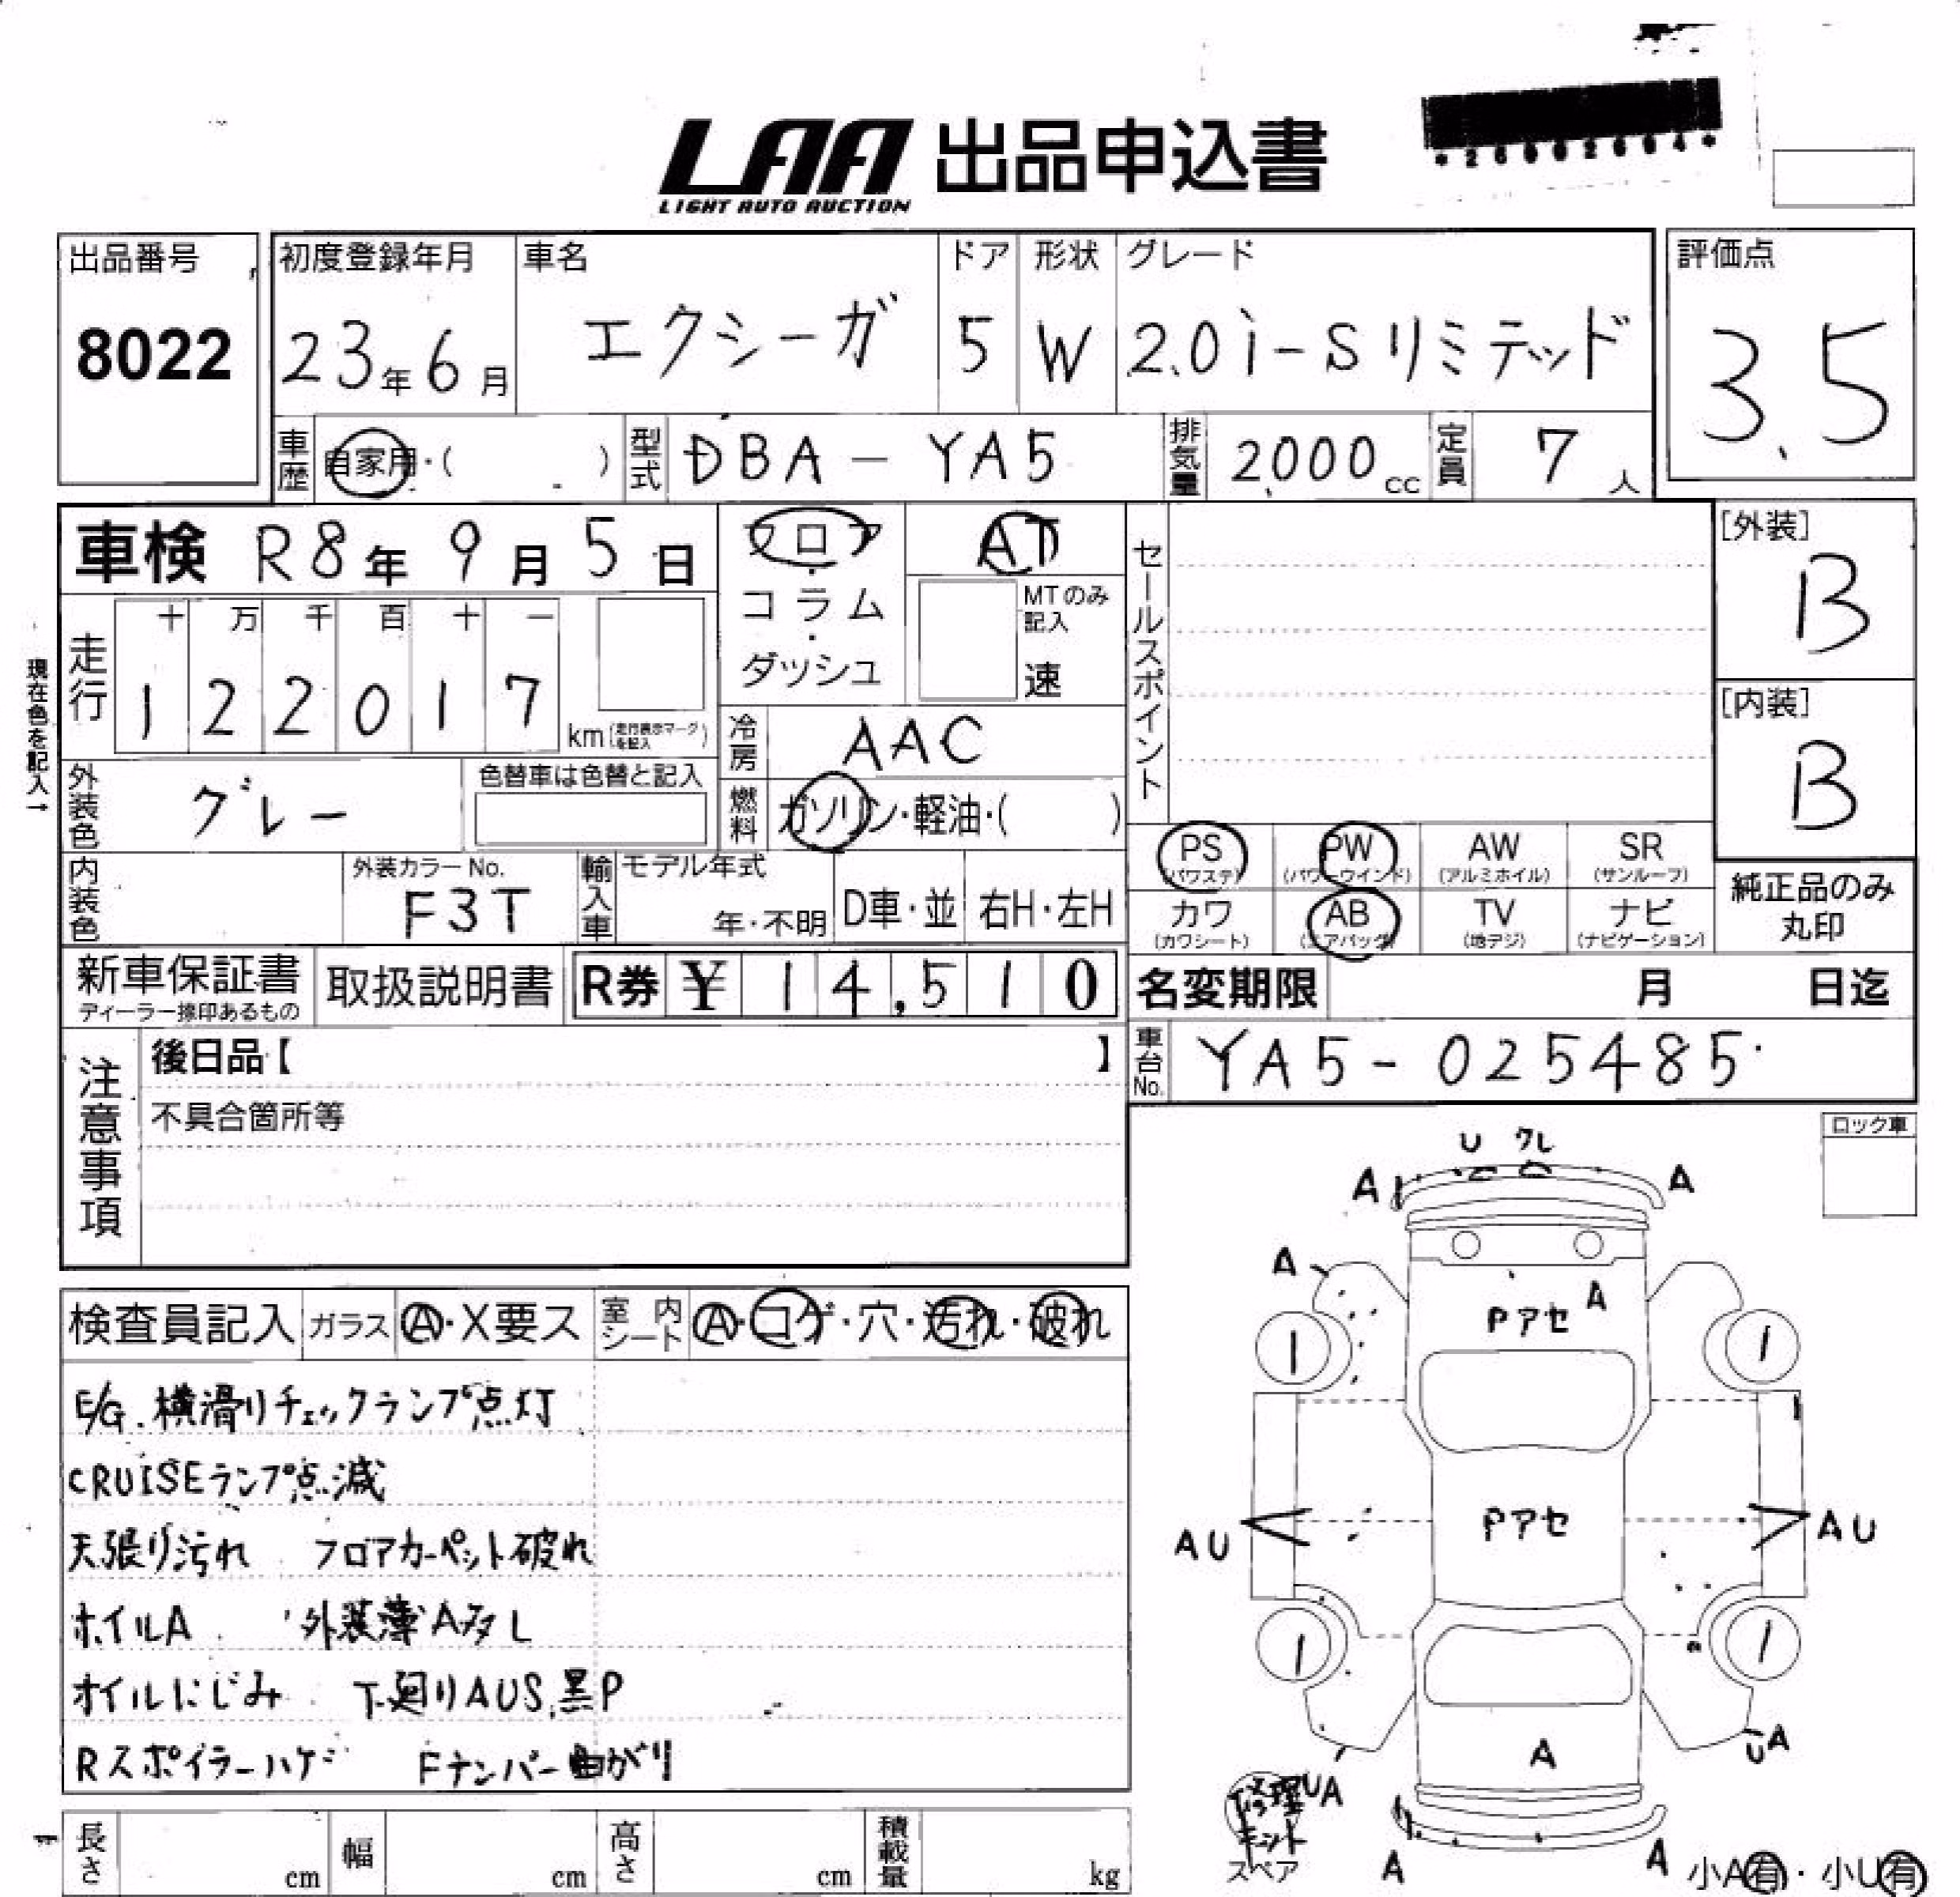 LAA 出品申込書
LIGHT AUTO AUCTION
*26002604*
出品番号 初度登録年月 車名 ドア 形状 グレード 評価点
8022 23年6月 エクシーガ 5 W 2.0i-Sリミテッド 3.5
車歴 自家用・( ) 型式 DBA-YA5 排気量 2,000cc 定員 7人
車検 R8年9月5日 フロア・コラム・ダッシュ AT セールスポイント [外装] B
MTのみ記入 速
現在色を記入→
走行 十 万 千 百 十 一
1 2 2 0 1 7 km(走行表示マークを記入)
冷房 AAC [内装] B
外装色 グレー 色替車は色替と記入 燃料 ガソリン・軽油・( )
PS(パワステ) PW(パワーウインド) AW(アルミホイル) SR(サンルーフ)
カワ(カワシート) AB(エアバッグ) TV(地デジ) ナビ(ナビゲーション) 純正品のみ丸印
内装色 外装カラーNo. F3T 輸入車 モデル年式 年・不明 D車・並 右H・左H
新車保証書 ディーラー捺印あるもの 取扱説明書 R券 ¥14,510 名変期限 月 日迄
注意事項 後日品【 】 車台No. YA5-025485
不具合箇所等
ロック車
検査員記入 ガラス A・X要ス 室内シート A・コゲ・穴・汚れ・破れ
E/G.横滑りチェックランプ点灯
CRUISEランプ点滅
天張り汚れ フロアカーペット破れ
ホイルA 外装薄A多し
オイルにじみ 下廻りAUS.黒P
Rスポイラーハゲ Fナンバー曲がり
U クレ
A A
A
A
Pアセ
1 1
Pアセ
AU AU
1 1
A
UA
UA
修理キット
スペア
A A
小A有・小U有
長さ cm 幅 cm 高さ cm 積載量 kg